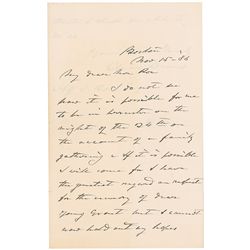 Boston
Nov 15-86
My dear Mr
I do not see
how it is possible for me
to be in Worcester on the
night of the 24th on
the account of a family
gathering. If it is possible
I will come for I have
the greatest regard and respect
for the memory of
young Grant but I cannot
now hold out any hopes